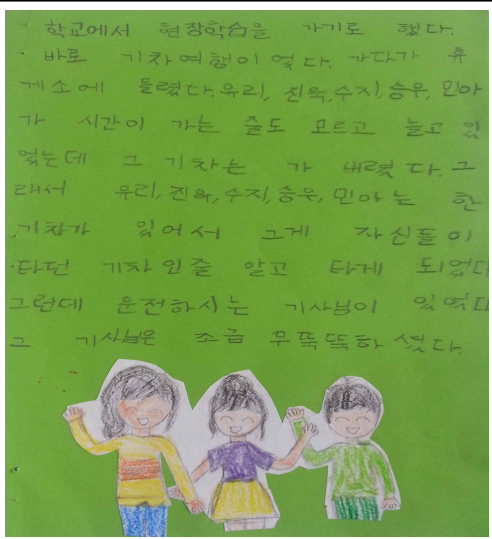 학교에서 현장학습을 가기로 했다.
바로 기차여행이 었다. 가다가 휴
게소에 들렸다. 유리, 진욱, 수지, 승우, 민아
가 시간이 가는 줄도 모르고 놀고 있
었는데 그 기차는 가 버렸다. 그
래서 유리, 진욱, 수지, 승우, 민아는 한
기차가 있어서 그게 자신들이
타던 기차인줄 알고 타게 되었다
그런데 운전하시는 기사님이 있었다
그 기사님은 조금 무뚝뚝하 셨다.